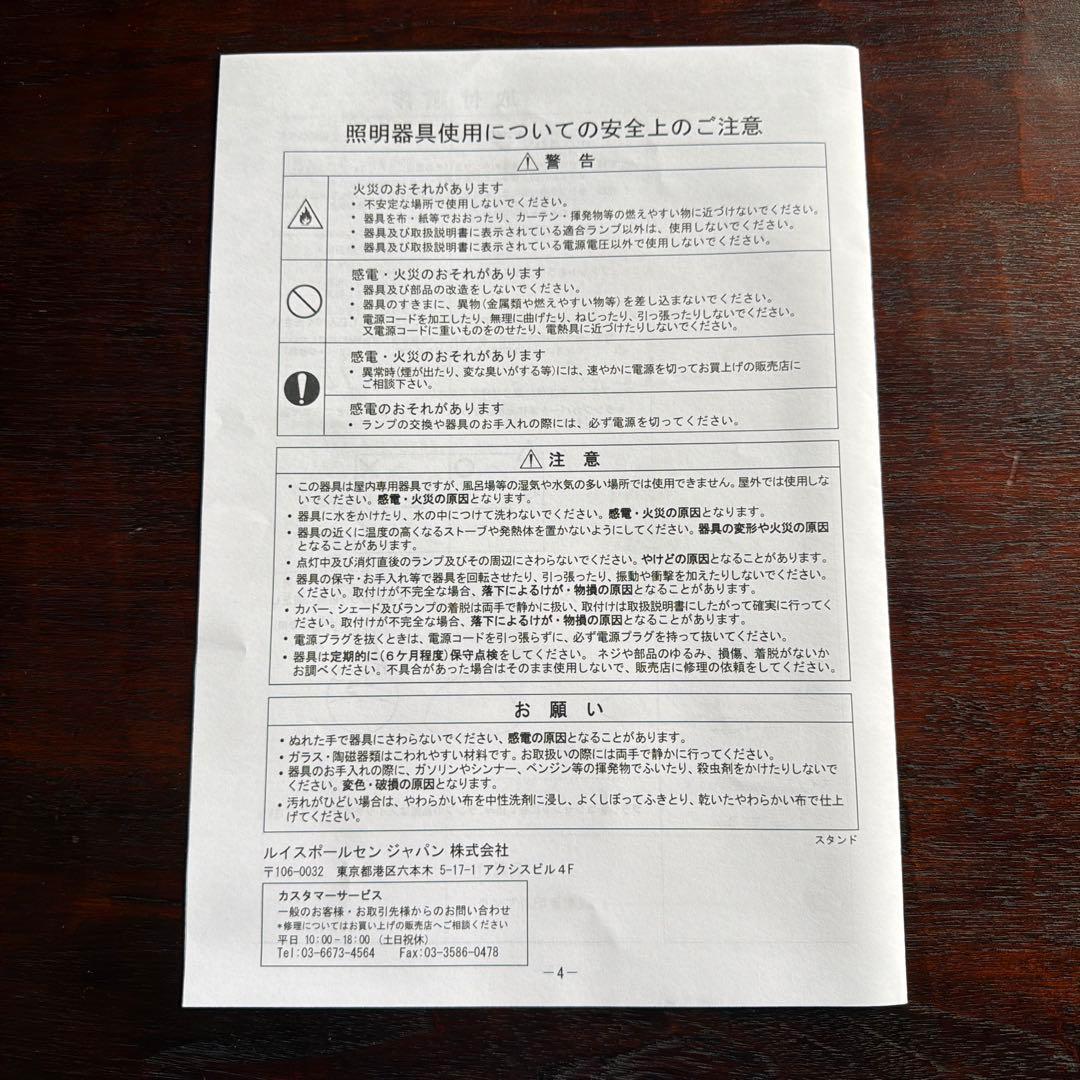 照明器具使用についての安全上のご注意
⚠ 警 告
火災のおそれがあります
・ 不安定な場所で使用しないでください。
・ 器具を布・紙等でおおったり、カーテン・揮発物等の燃えやすい物に近づけないでください。
・ 器具及び取扱説明書に表示されている適合ランプ以外は、使用しないでください。
・ 器具及び取扱説明書に表示されている電源電圧以外で使用しないでください。
感電・火災のおそれがあります
・ 器具及び部品の改造をしないでください。
・ 器具のすきまに、異物(金属類や燃えやすい物等)を差し込まないでください。
・ 電源コードを加工したり、無理に曲げたり、ねじったり、引っ張ったりしないでください。
又電源コードに重いものをのせたり、電熱具に近づけたりしないでください。
感電・火災のおそれがあります
・ 異常時(煙が出たり、変な臭いがする等)には、速やかに電源を切ってお買上げの販売店に
ご相談下さい。
感電のおそれがあります
・ ランプの交換や器具のお手入れの際には、必ず電源を切ってください。
⚠ 注 意
・ この器具は屋内専用器具ですが、風呂場等の湿気や水気の多い場所では使用できません。屋外では使用しな
いでください。感電・火災の原因となります。
・ 器具に水をかけたり、水の中につけて洗わないでください。感電・火災の原因となります。
・ 器具の近くに温度の高くなるストーブや発熱体を置かないようにしてください。器具の変形や火災の原因
となることがあります。
・ 点灯中及び消灯直後のランプ及びその周辺にさわらないでください。やけどの原因となることがあります。
・ 器具の保守・お手入れ等で器具を回転させたり、引っ張ったり、振動や衝撃を加えたりしないでください。
ください。取付けが不完全な場合、落下によるけが・物損の原因となることがあります。
・ カバー、シェード及びランプの着脱は両手で静かに扱い、取付けは取扱説明書にしたがって確実に行ってく
ださい。取付けが不完全な場合、落下によるけが・物損の原因となることがあります。
・ 電源プラグを抜くときは、電源コードを引っ張らずに、必ず電源プラグを持って抜いてください。
・ 器具は定期的に(6ケ月程度)保守点検をしてください。 ネジや部品のゆるみ、損傷、着脱がないか
お調べください。不具合があった場合はそのまま使用しないで、販売店に修理の依頼をしてください。
お 願 い
・ ぬれた手で器具にさわらないでください、感電の原因となることがあります。
・ ガラス・陶磁器類はこわれやすい材料です。お取扱いの際には両手で静かに行ってください。
・ 器具のお手入れの際に、ガソリンやシンナー、ベンジン等の揮発物でふいたり、殺虫剤をかけたりしないで
ください。変色・破損の原因となります。
・ 汚れがひどい場合は、やわらかい布を中性洗剤に浸し、よくしぼってふきとり、乾いたやわらかい布で仕上
げてください。
スタンド
ルイスポールセン ジャパン 株式会社
〒106-0032 東京都港区六本木 5-17-1 アクシスビル4F
カスタマーサービス
一般のお客様・お取引先様からのお問い合わせ
*修理についてはお買い上げの販売店へご相談ください
平日 10:00-18:00 (土日祝休)
Tel:03-6673-4564 Fax:03-3586-0478
-4-